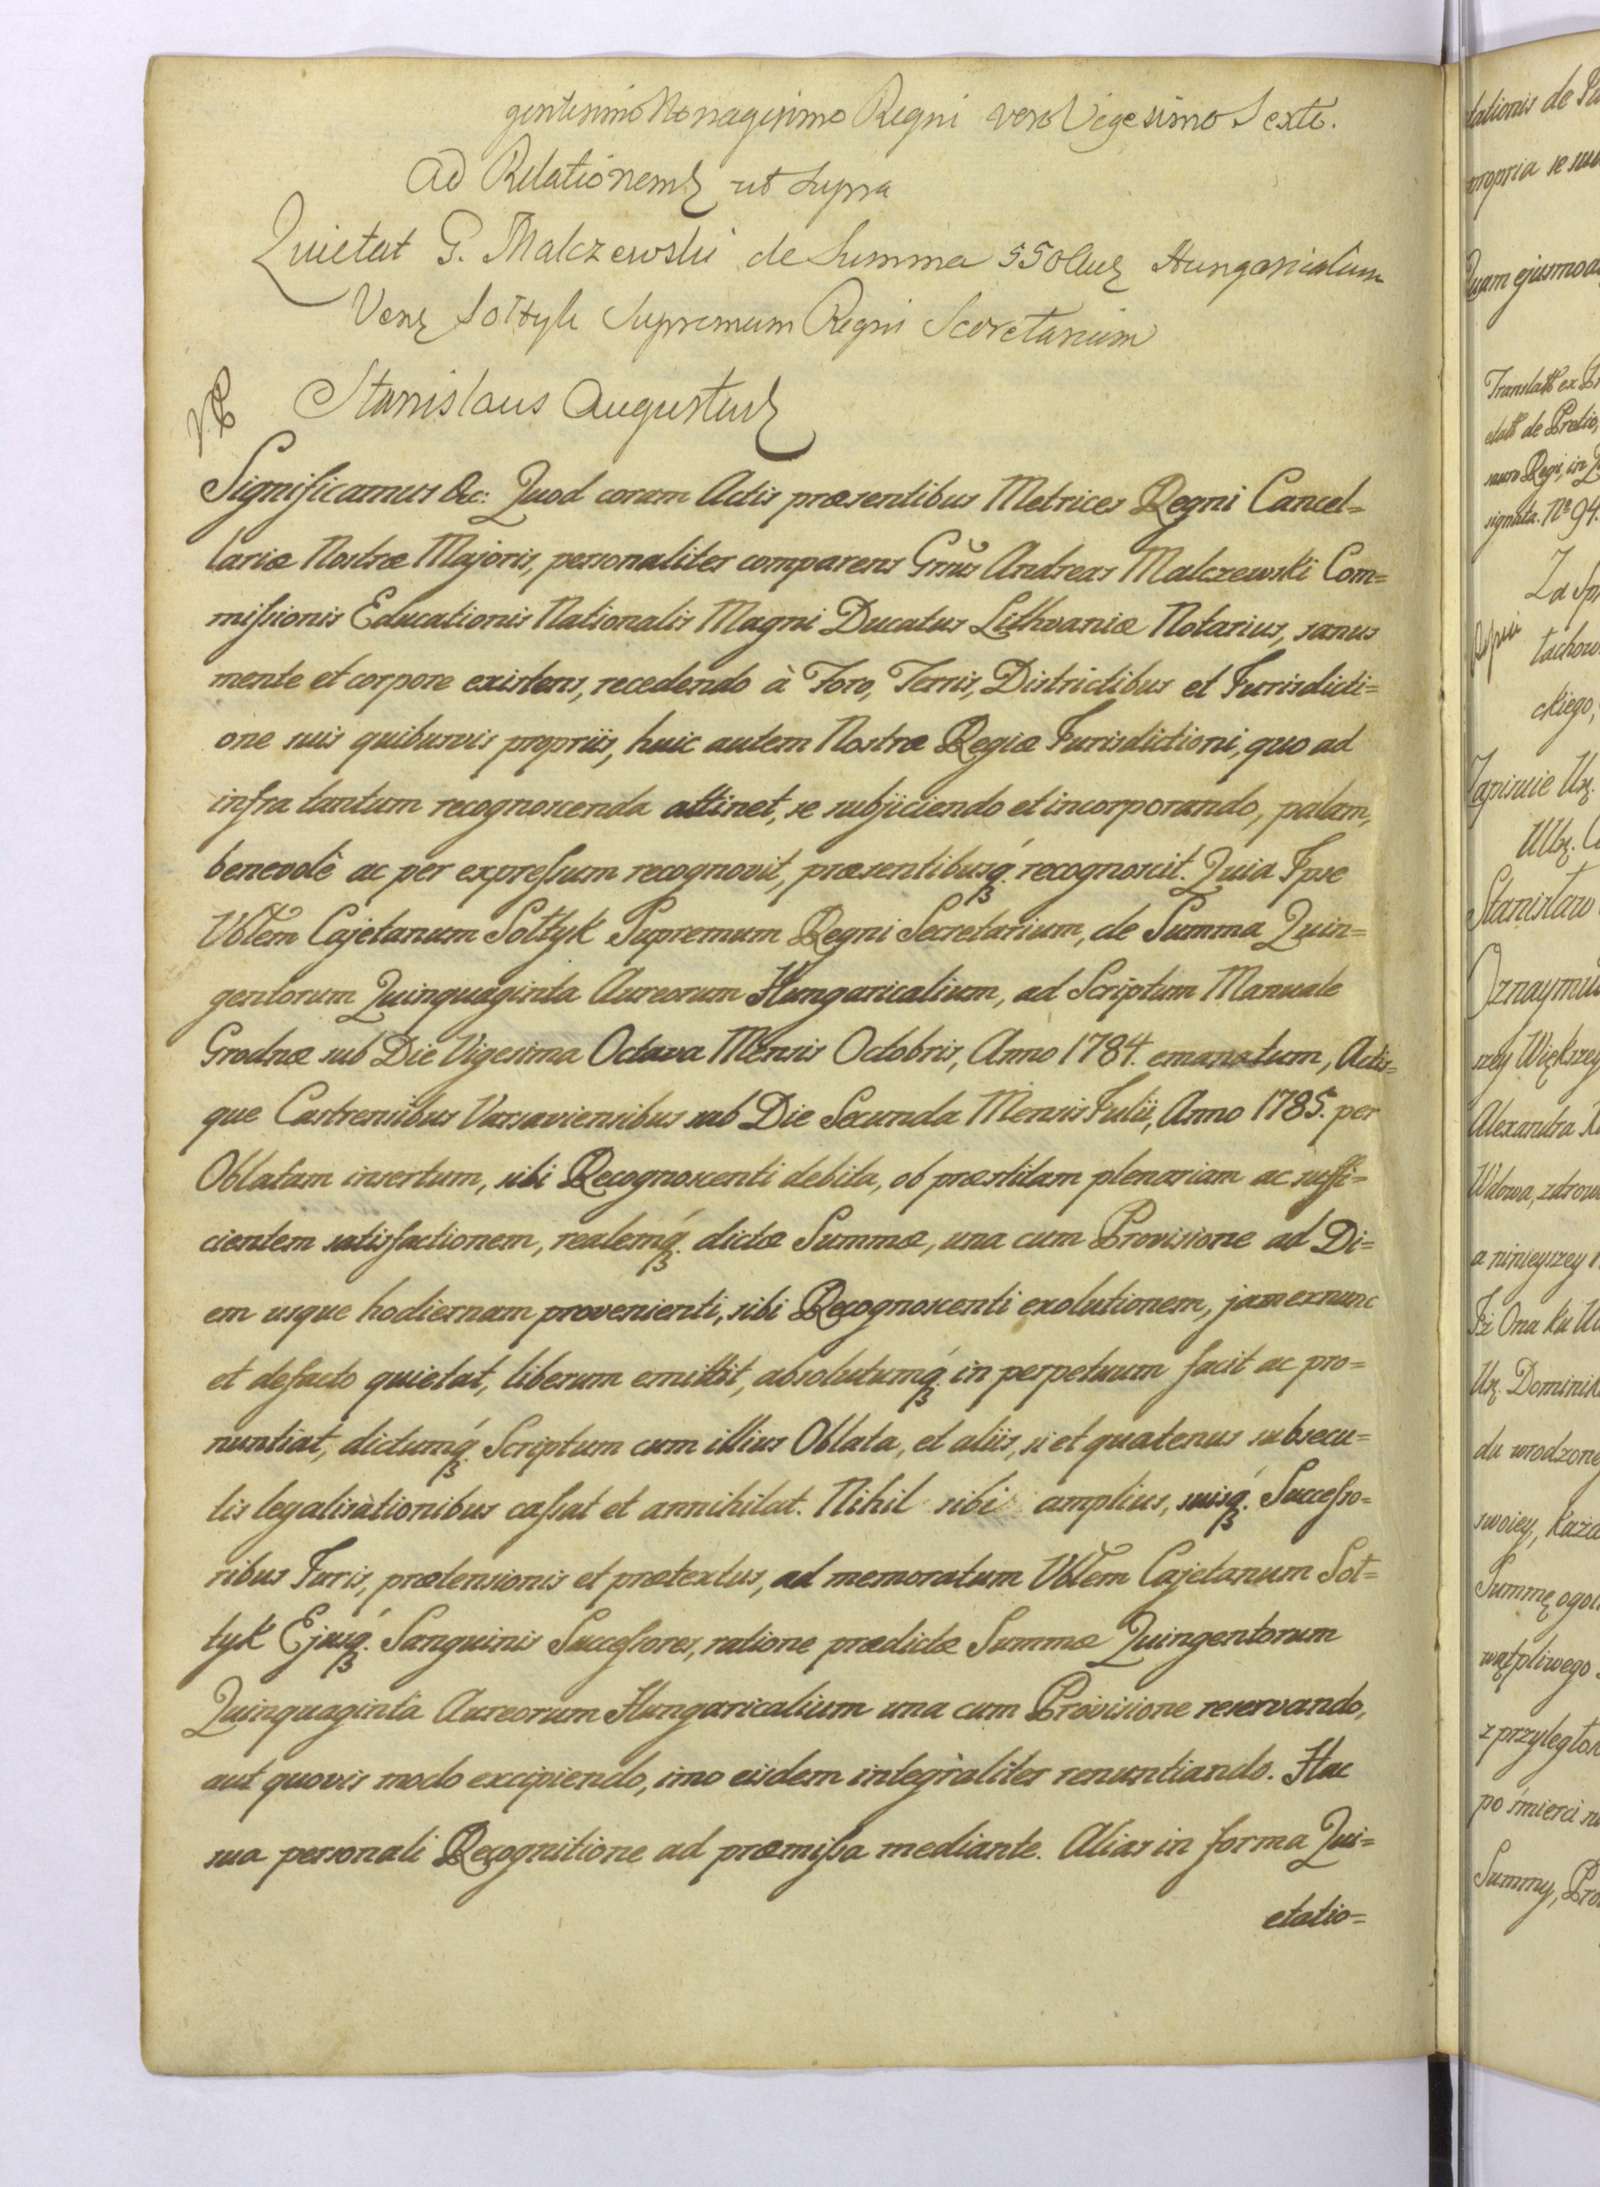 gentesimo Nonagesimo Regni vero Vigesimo Sexto.
Ad Relationem ut supra
Quietat G. Malczewski de Summa 550 Aur Hungaricalium
Vene Sołtyk Supremum Regni Secretarium
Stanislaus Augustus
Significamus &c: Quod coram Actis præsentibus Metrices Regni Cancel=
lariæ Nostræ Majoris, personaliter comparens Gnŭs Andreas Malczewski Com=
miſsionis Educationis Nationalis Magni Ducatus Lithvaniæ Notarius, sanus
mente et corpore existens, recedendo à Foro, Terris, Districtibus et Jurisdicti=
one suis quibusvis propriis, huic autem Nostræ Regiæ Jurisdictioni, quo ad
infra tantum recognoscenda attinet, se subjiciendo et incorporando, palam,
benevolè ac per expreſsum recognovit, præsentibusq́ꝫ recognoscit. Quia Ipse
Vblem Cajetanum Sołtyk Supremum Regni Secretarium, de Summa Quin=
gentorum Quinquaginta Aureorum Hungaricalium, ad Scriptum Manuale
Grodnæ sub Die Vigesima Octava Mensis Octobris, Anno 1784. emanatum, Actis=
que Castrensibus Varsaviensibus sub Die Secunda Mensis Julii, Anno 1785. per
Oblatam insertum, sibi Recognoscenti debita, ob præstitam plenariam ac suffi=
cientem satisfactionem, realemq́ꝫ dictæ Summæ, una cum Provisione ad Di=
em usque hodiernam provenienti, sibi Recognoscenti exolutionem, jam exnunc
et defacto quietat, liberum emittit, absolutumq́ꝫ in perpetuum facit ac pro=
nuntiat, dictumq́ꝫ Scriptum cum illius Oblata, et aliis, si et quatenus subsecu=
tis legalisationibus caſsat et annihilat. Nihil sibi amplius, suisq́ꝫ Succeſso=
ribus Juris, prætensionis et prætextus, ad memoratum Vblem Cajetanum Soł=
tyk Ejusq́ꝫ Sanguinis Succeſsores, ratione prædictæ Summæ Quingentorum
Quinquaginta Aureorum Hungaricalium una cum Provisione reservando,
aut quovis modo excipiendo, imo eisdem integraliter renuntiando. Hac
sua personali Recognitione ad præmiſsa mediante. Alias in forma Qui=
etatio=
tationis de
propria se
Quam ejusmod
Translatt ex
de Pretio,
Regi, in
signata. No 94.
Za
tachow
ckiego,
Zapisuie Ur.
Stanisław
Oznaymu
szey Większey
Alexandra
Wdowa, zdrow
a ninieyszey
Iż Ona ku
Ur. Dominik
du wrodzone
swoiey, każd
Summę ogol
wątpliwego
z przyległo
po śmierci
Summy, Pro